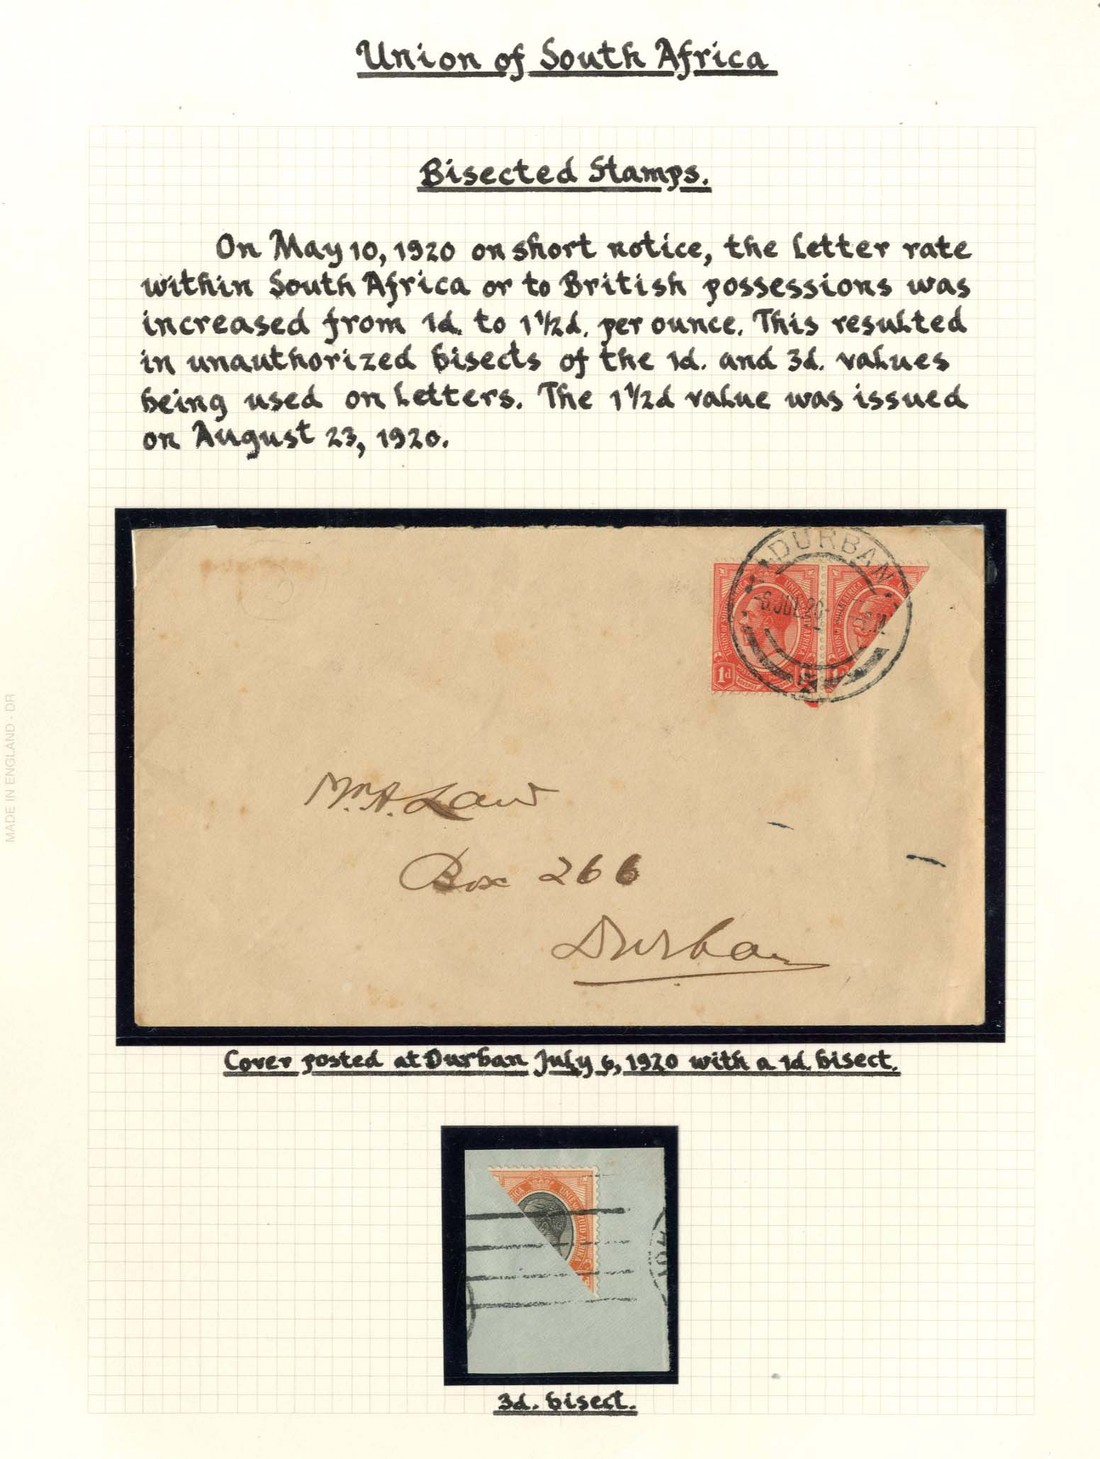 Union of South Africa
Bisected Stamps.
On May 10, 1920 on short notice, the letter rate
within South Africa or to British possessions was
increased from 1d. to 1½d. per ounce. This resulted
in unauthorized bisects of the 1d. and 3d. values
being used on letters. The 1½d value was issued
on August 23, 1920.
DURBAN
6 JUL 20
1d
Mr. A. Law
Box 266
Durban
Cover posted at Durban July 6, 1920 with a 1d. bisect.
3d. bisect.
MADE IN ENGLAND - DR